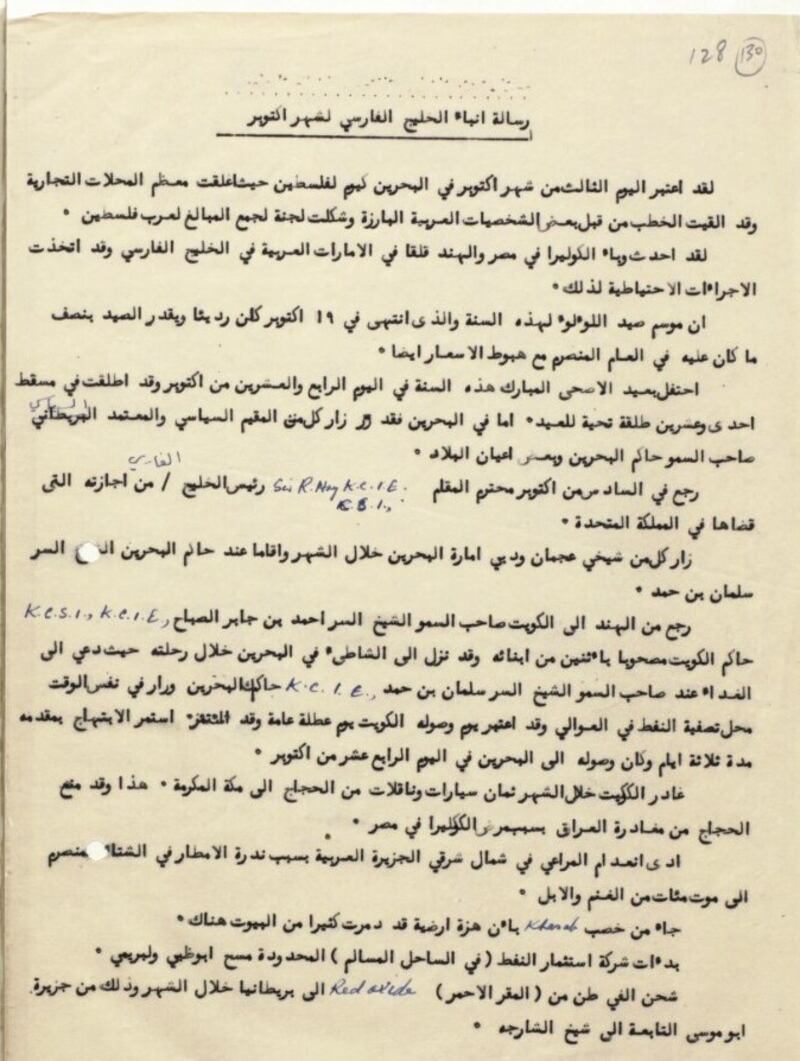 128 (130)
رسالة انباء الخليج الفارسي لشهر اكتوبر
لقد اعتبر اليوم الثالث من شهر اكتوبر في البحرين كيوم لفلسطين حيث اغلقت معظم المحلات التجارية
وقد القيت الخطب من قبل بعض الشخصيات العربية البارزة وشكلت لجنة لجمع المبالغ لعرب فلسطين •
لقد احدث وباء الكوليرا في مصر والهند قلقا في الامارات العربية في الخليج الفارسي وقد اتخذت
الاجراءات الاحتياطية لذلك •
ان موسم صيد اللوءلوء لهذه السنة والذى انتهى في ١٩ اكتوبر كان رديئا ويقدر الصيد بنصف
ما كان عليه في العام المنصرم مع هبوط الاسعار ايضا •
احتفل بعيد الاضحى المبارك هذه السنة في اليوم الرابع والعشرين من اكتوبر وقد اطلقت في مسقط
احدى وعشرين طلقة تحية للعيد • اما في البحرين فقد زار كل من المقيم السياسي والمعتمد السياسي
صاحب السمو حاكم البحرين وبعض اعيان البلاد •
رجع في السادس من اكتوبر محترم المقام Sir R. Hay K.C.I.E. رئيس الخليج / الفارسي من اجازته التى
C.S.I.,
قضاها في المملكة المتحدة •
زار كل من شيخي عجمان ودبي امارة البحرين خلال الشهر واقاما عند حاكم البحرين الشيخ السر
سلمان بن حمد •
رجع من الهند الى الكويت صاحب السمو الشيخ السر احمد بن جابر الصباح K.C.S.I., K.C.I.E.,
حاكم الكويت مصحوبا باءثنين من ابنائه وقد نزل الى الشاطىء في البحرين خلال رحلته حيث دعي الى
الغداء عند صاحب السمو الشيخ السر سلمان بن حمد K.C.I.E., حاكم البحرين وزار في نفس الوقت
محل تصفية النفط في العوالي وقد اعتبر يوم وصوله الكويت يوم عطلة عامة وقد استمر الابتهاج بمقدمه
مدة ثلاثة ايام وكان وصوله الى البحرين في اليوم الرابع عشر من اكتوبر •
غادر الكويت خلال الشهر ثمان سيارات وناقلات من الحجاج الى مكة المكرمة • هذا وقد منع
الحجاج من مغادرة العراق بسبب مرض الكوليرا في مصر •
ادى انعدام المراعي في شمال شرقي الجزيرة العربية بسبب ندرة الامطار في الشتاء المنصرم
الى موت مئات من الغنم والابل •
جاء من خصب Khasab باءن هزة ارضية قد دمرت كثيرا من البيوت هناك •
بدءات شركة استثمار النفط (في الساحل المسالم) المحدودة مسح ابوظبي ولبريمي •
شحن الفي طن من (المقر الاحمر) Red oxide الى بريطانيا خلال الشهر وذلك من جزيرة
ابو موسى التابعة الى شيخ الشارجه •